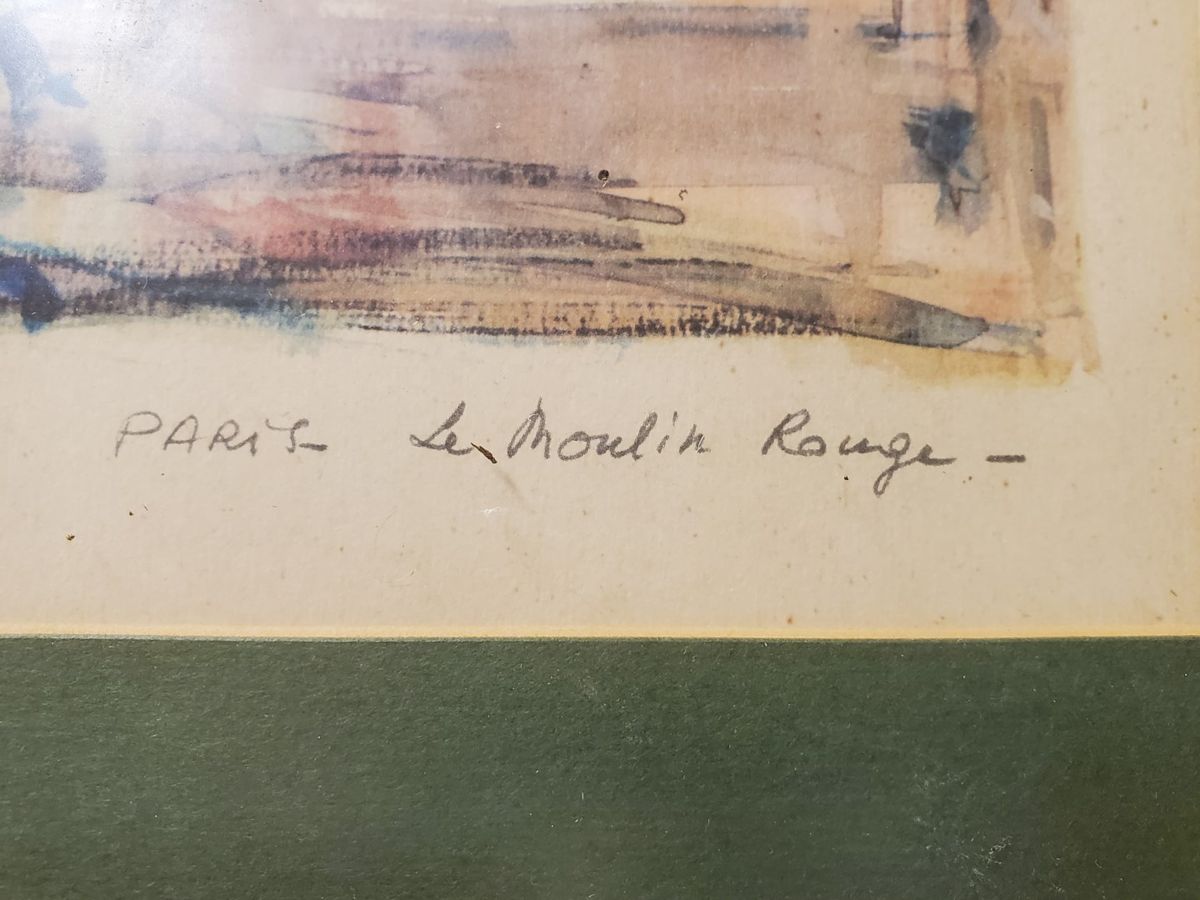 PARIS- Le Moulin Rouge -